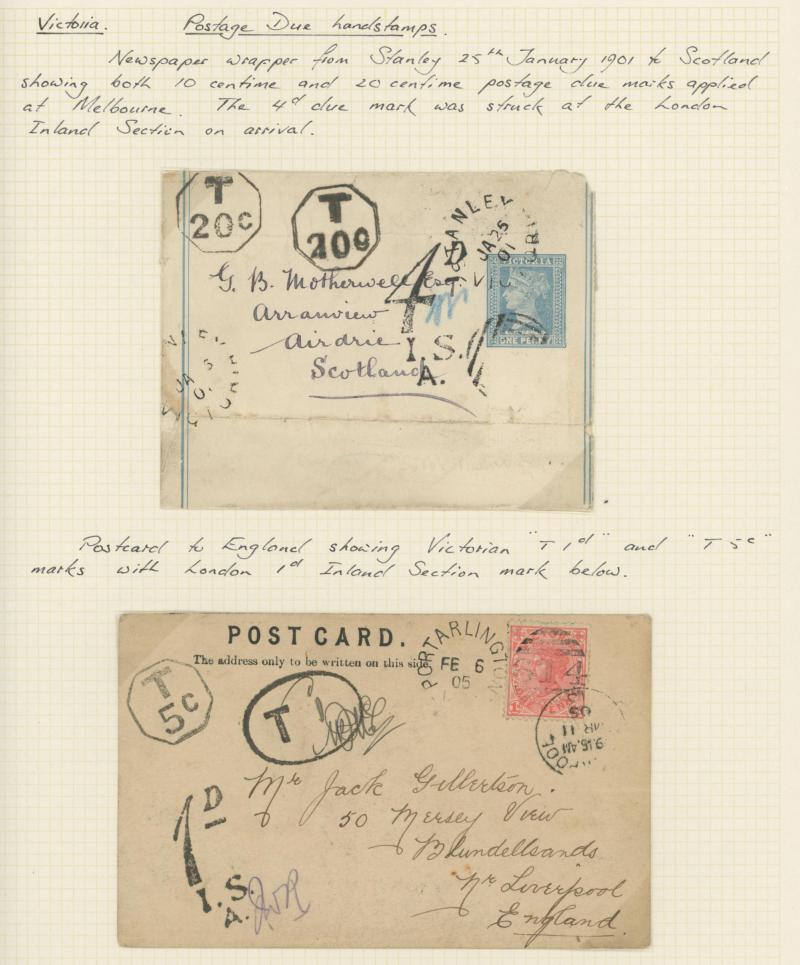 Victoria. Postage Due handstamps.
Newspaper wrapper from Stanley 25th January 1901 to Scotland
showing both 10 centime and 20 centime postage due marks applied
at Melbourne. The 4d due mark was struck at the London
Inland Section on arrival.
T
20c
T
20c
STANLEY
JA 25
01
VIC
VICTORIA
ONE PENNY
4D
I.S.
A.
G. B. Motherwell Esq.
Arranview
Airdrie
Scotland
Postcard to England showing Victorian "T 1d" and "T 5c"
marks with London 1d Inland Section mark below.
POST CARD.
The address only to be written on this side.
PORTARLINGTON
FE 6
05
T
5c
T
9.15.AM
MR 11
05
1D
I.S.
A.
Mr Jack Gillertson.
50 Mersey View
Blundellsands
Nr Liverpool
England